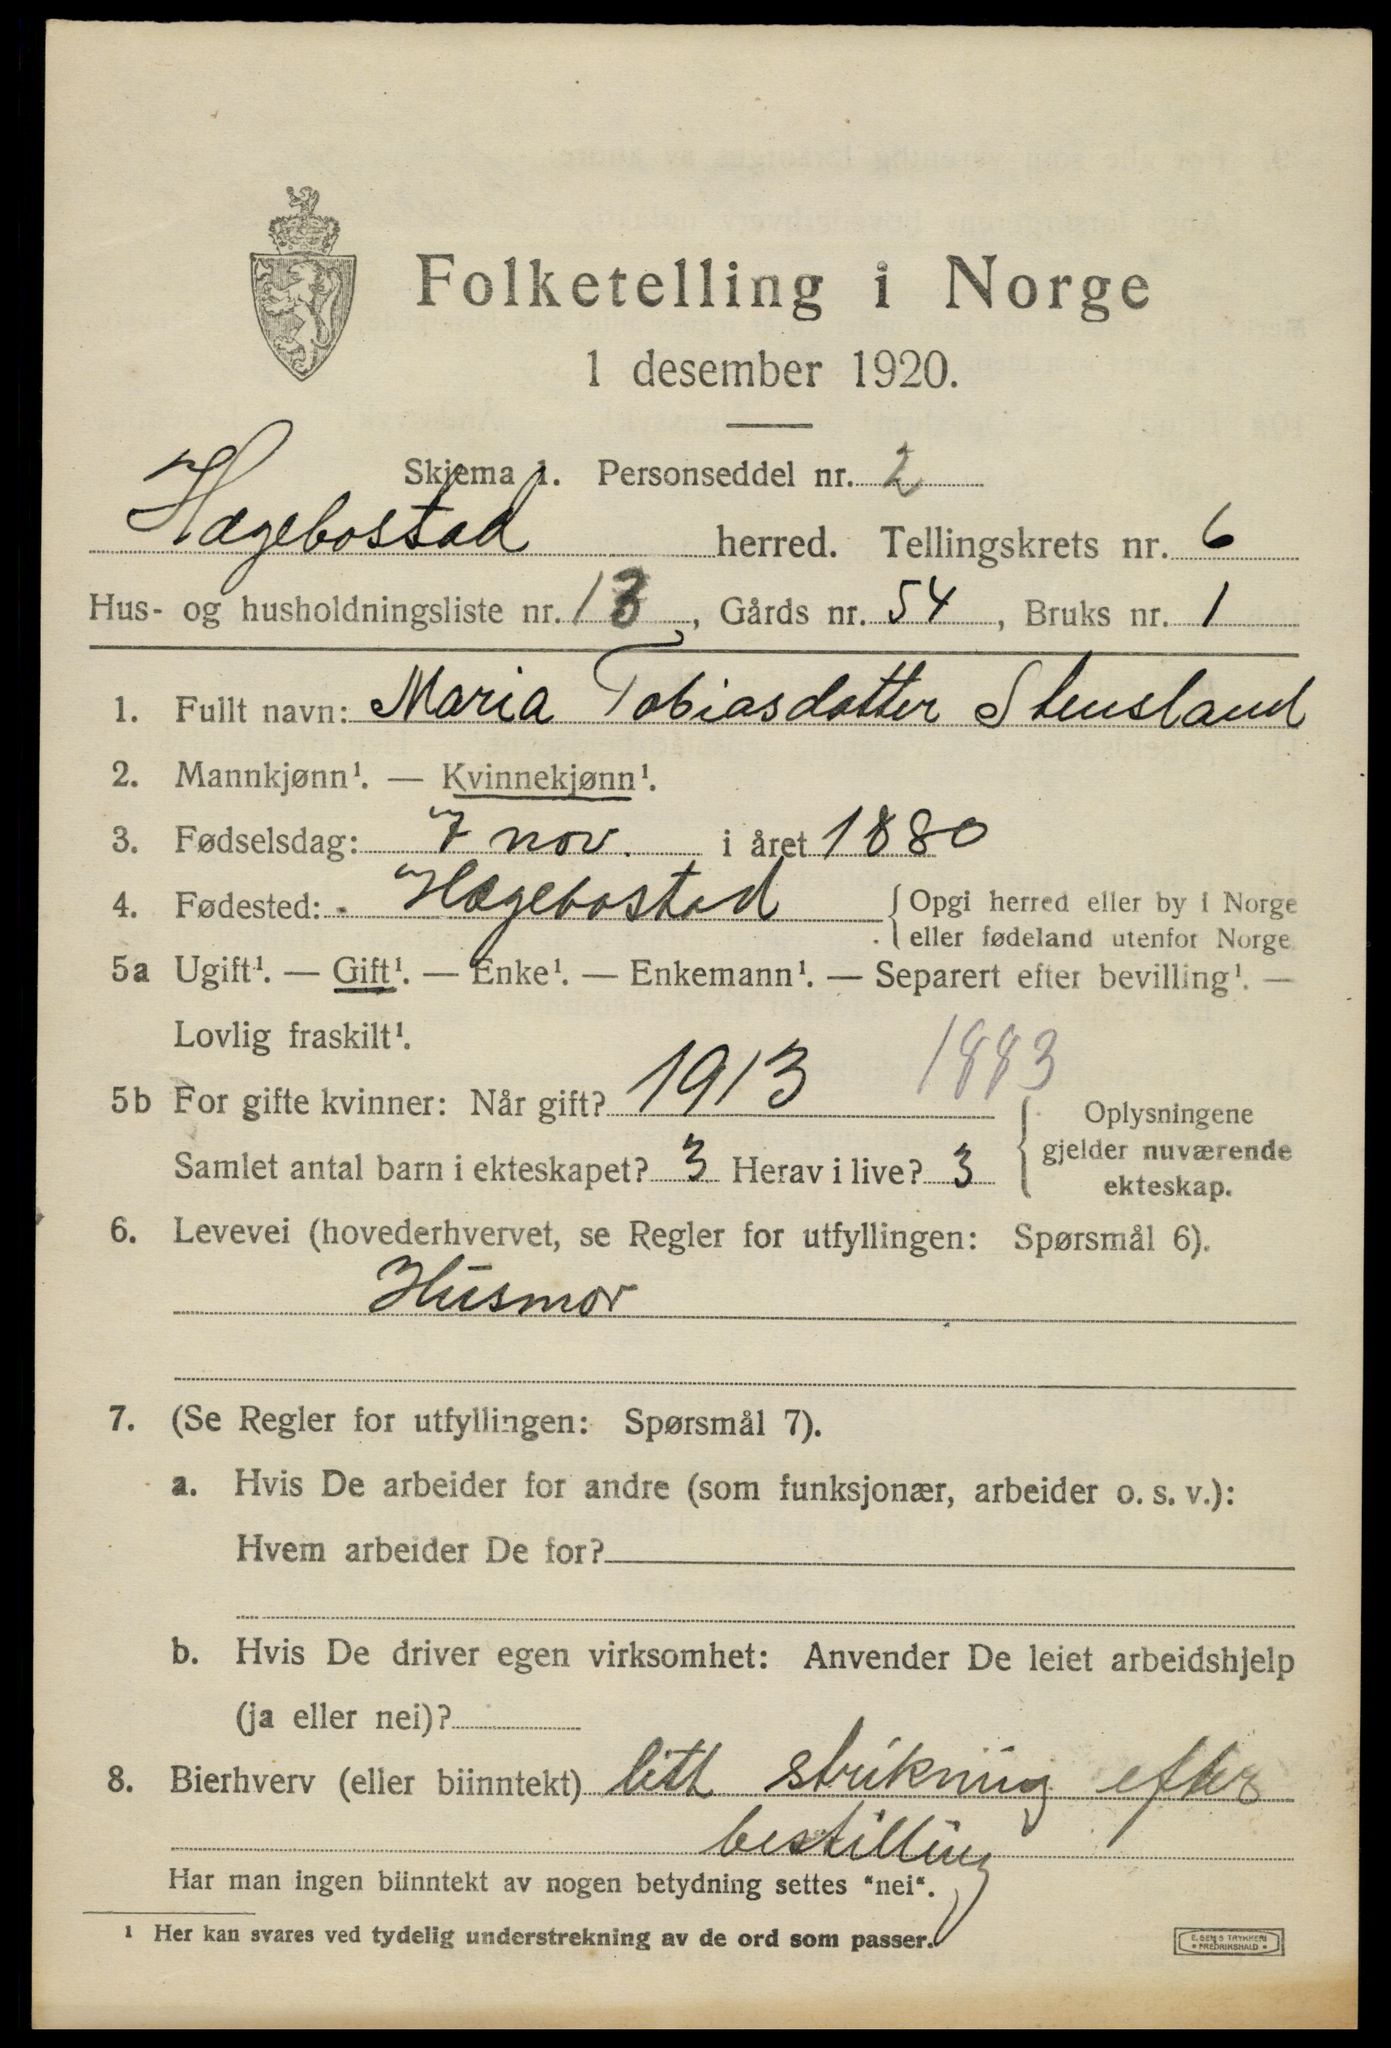 Folketelling i Norge
1 desember 1920.
Skjema 1. Personseddel nr. 2
Hægebostad herred. Tellingskrets nr. 6
Hus- og husholdningsliste nr. 13, Gårds nr. 54, Bruks nr. 1
1. Fullt navn: Maria Tobiasdatter Stensland
2. Mannkjønn¹. — Kvinnekjønn¹.
3. Fødselsdag: 7 nov. i året 1880
4. Fødested: Hægebostad { Opgi herred eller by i Norge
eller fødeland utenfor Norge
5a Ugift¹. — Gift¹. — Enke¹. — Enkemann¹. — Separert efter bevilling¹. —
Lovlig fraskilt¹.
1883
5b For gifte kvinner: Når gift? 1913
Samlet antal barn i ekteskapet? 3 Herav i live? 3
Oplysningene
gjelder nuværende
ekteskap.
6. Levevei (hovederhvervet, se Regler for utfyllingen: Spørsmål 6).
Husmor
7. (Se Regler for utfyllingen: Spørsmål 7).
a. Hvis De arbeider for andre (som funksjonær, arbeider o. s. v.):
Hvem arbeider De for?
b. Hvis De driver egen virksomhet: Anvender De leiet arbeidshjelp
(ja eller nei)?
8. Bierhverv (eller biinntekt) litt strikning efter
bestilling
Har man ingen biinntekt av nogen betydning settes "nei".
¹ Her kan svares ved tydelig understrekning av de ord som passer.
E. SEM'S TRYKKERI
FREDRIKSHALD